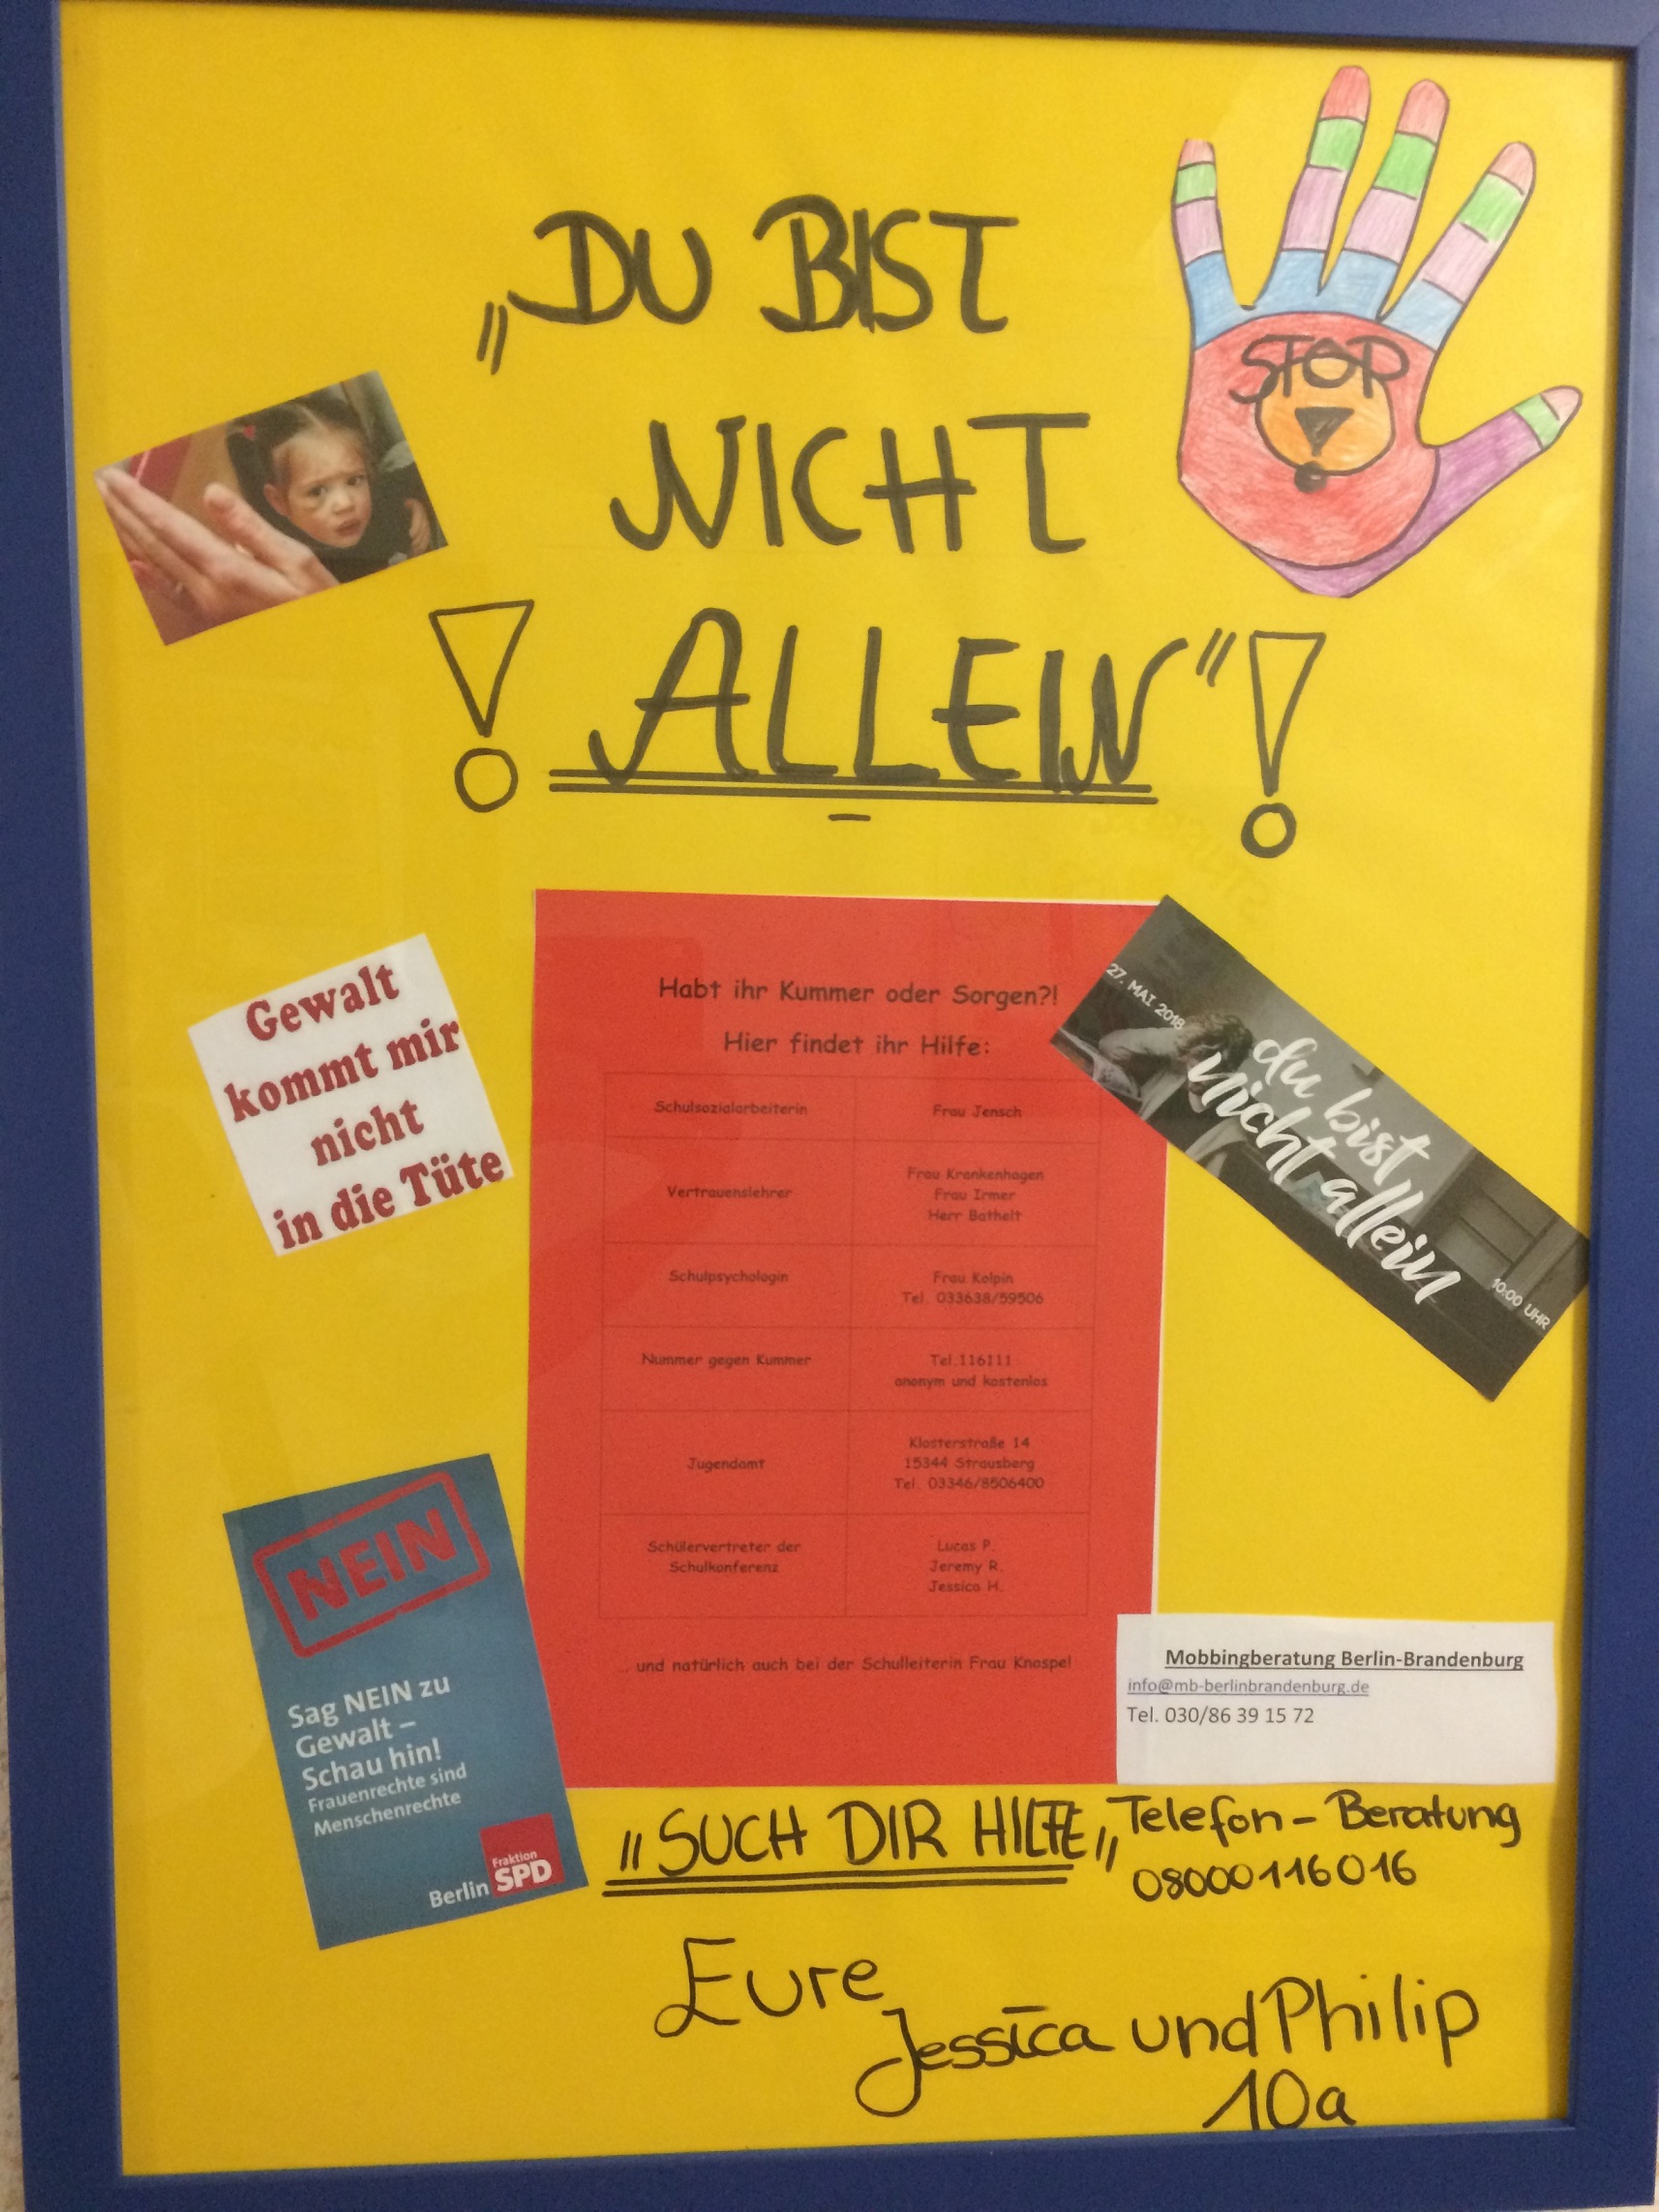 „DU BIST
NICHT
! ALLEIN" !
STOP
Gewalt
kommt mir
nicht
in die Tüte
Habt ihr Kummer oder Sorgen?!
Hier findet ihr Hilfe:
Schulsozialarbeiterin Frau Jensch
Vertrauenslehrer
Frau Krankenhagen
Frau Irmer
Herr Bathelt
Schulpsychologin
Frau Kolpin
Tel. 033638/59506
Nummer gegen Kummer
Tel.116111
anonym und kostenlos
Jugendamt
Klosterstraße 14
15344 Strausberg
Tel. 03346/8506400
Schülervertreter der
Schulkonferenz
Lucas P.
Jeremy R.
Jessica H.
... und natürlich auch bei der Schulleiterin Frau Knospel
27. MAI 2018
du bist
nicht allein
10:00 UHR
NEIN
Sag NEIN zu
Gewalt –
Schau hin!
Frauenrechte sind
Menschenrechte
Fraktion
Berlin SPD
Mobbingberatung Berlin-Brandenburg
info@mb-berlinbrandenburg.de
Tel. 030/86 39 15 72
„SUCH DIR HILFE„
Telefon - Beratung
08000116016
Eure
Jessica und Philip
10a